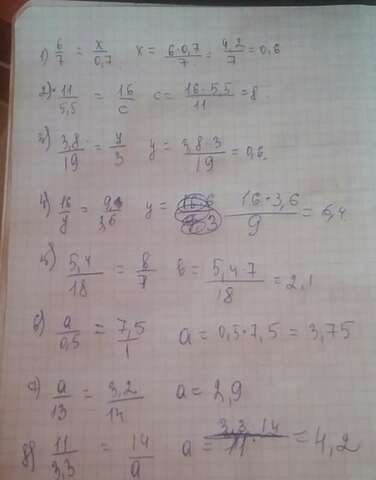 1) 6/7 = x/0,7 x = 6·0,7/7 = 4,2/7 = 0,6
2) 11/5,5 = 16/c c = 16·5,5/11 = 8
3) 3,8/19 = y/3 y = 3,8·3/19 = 0,6
4) 16/y = 9/3,6 y = 16·3,6/9 = 6,4
5) 5,4/18 = b/7 b = 5,4·7/18 = 2,1
6) a/0,5 = 7,5/1 a = 0,5·7,5 = 3,75
a/13 = 3,2/14 a = 2,9
8) 11/3,3 = 14/a a = 3,3·14/11 = 4,2